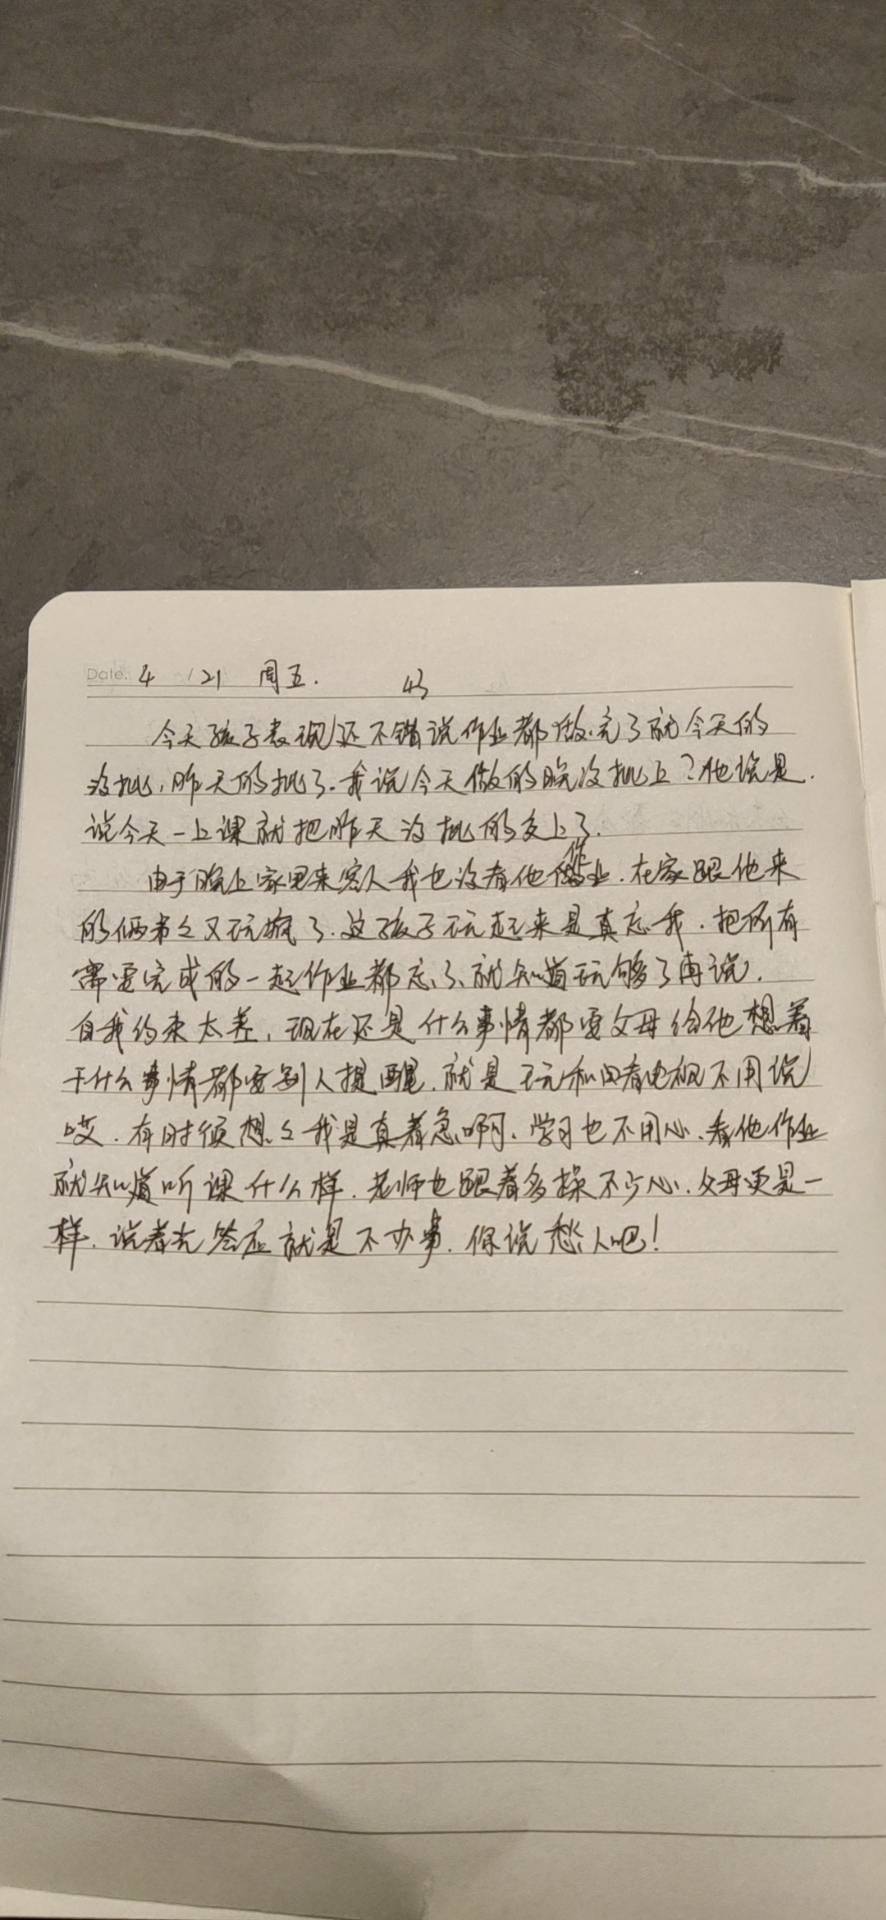 Date: 4 / 21 周五. 43
今天孩子表现还不错说作业都做完了就今天的
没批,昨天的批了.我说今天做的晚没批上?他说是.
说今天一上课就把昨天没批的交上了.
由于晚上家里来客人我也没看他作业.在家跟他来
的俩弟々又玩疯了.这孩子玩起来是真忘我.把所有
需要完成的一起作业都忘了就知道玩够了再说.
自我约束太差,现在还是什么事情都要父母给他想着
干什么事情都要别人提醒.就是玩和看电视不用说
哎.有时候想々我是真着急啊、学习也不用心、看他作业
就知道听课什么样.老师也跟着多操不少心.父母更是一
样.说着先答应就是不办事.你说愁人吧!